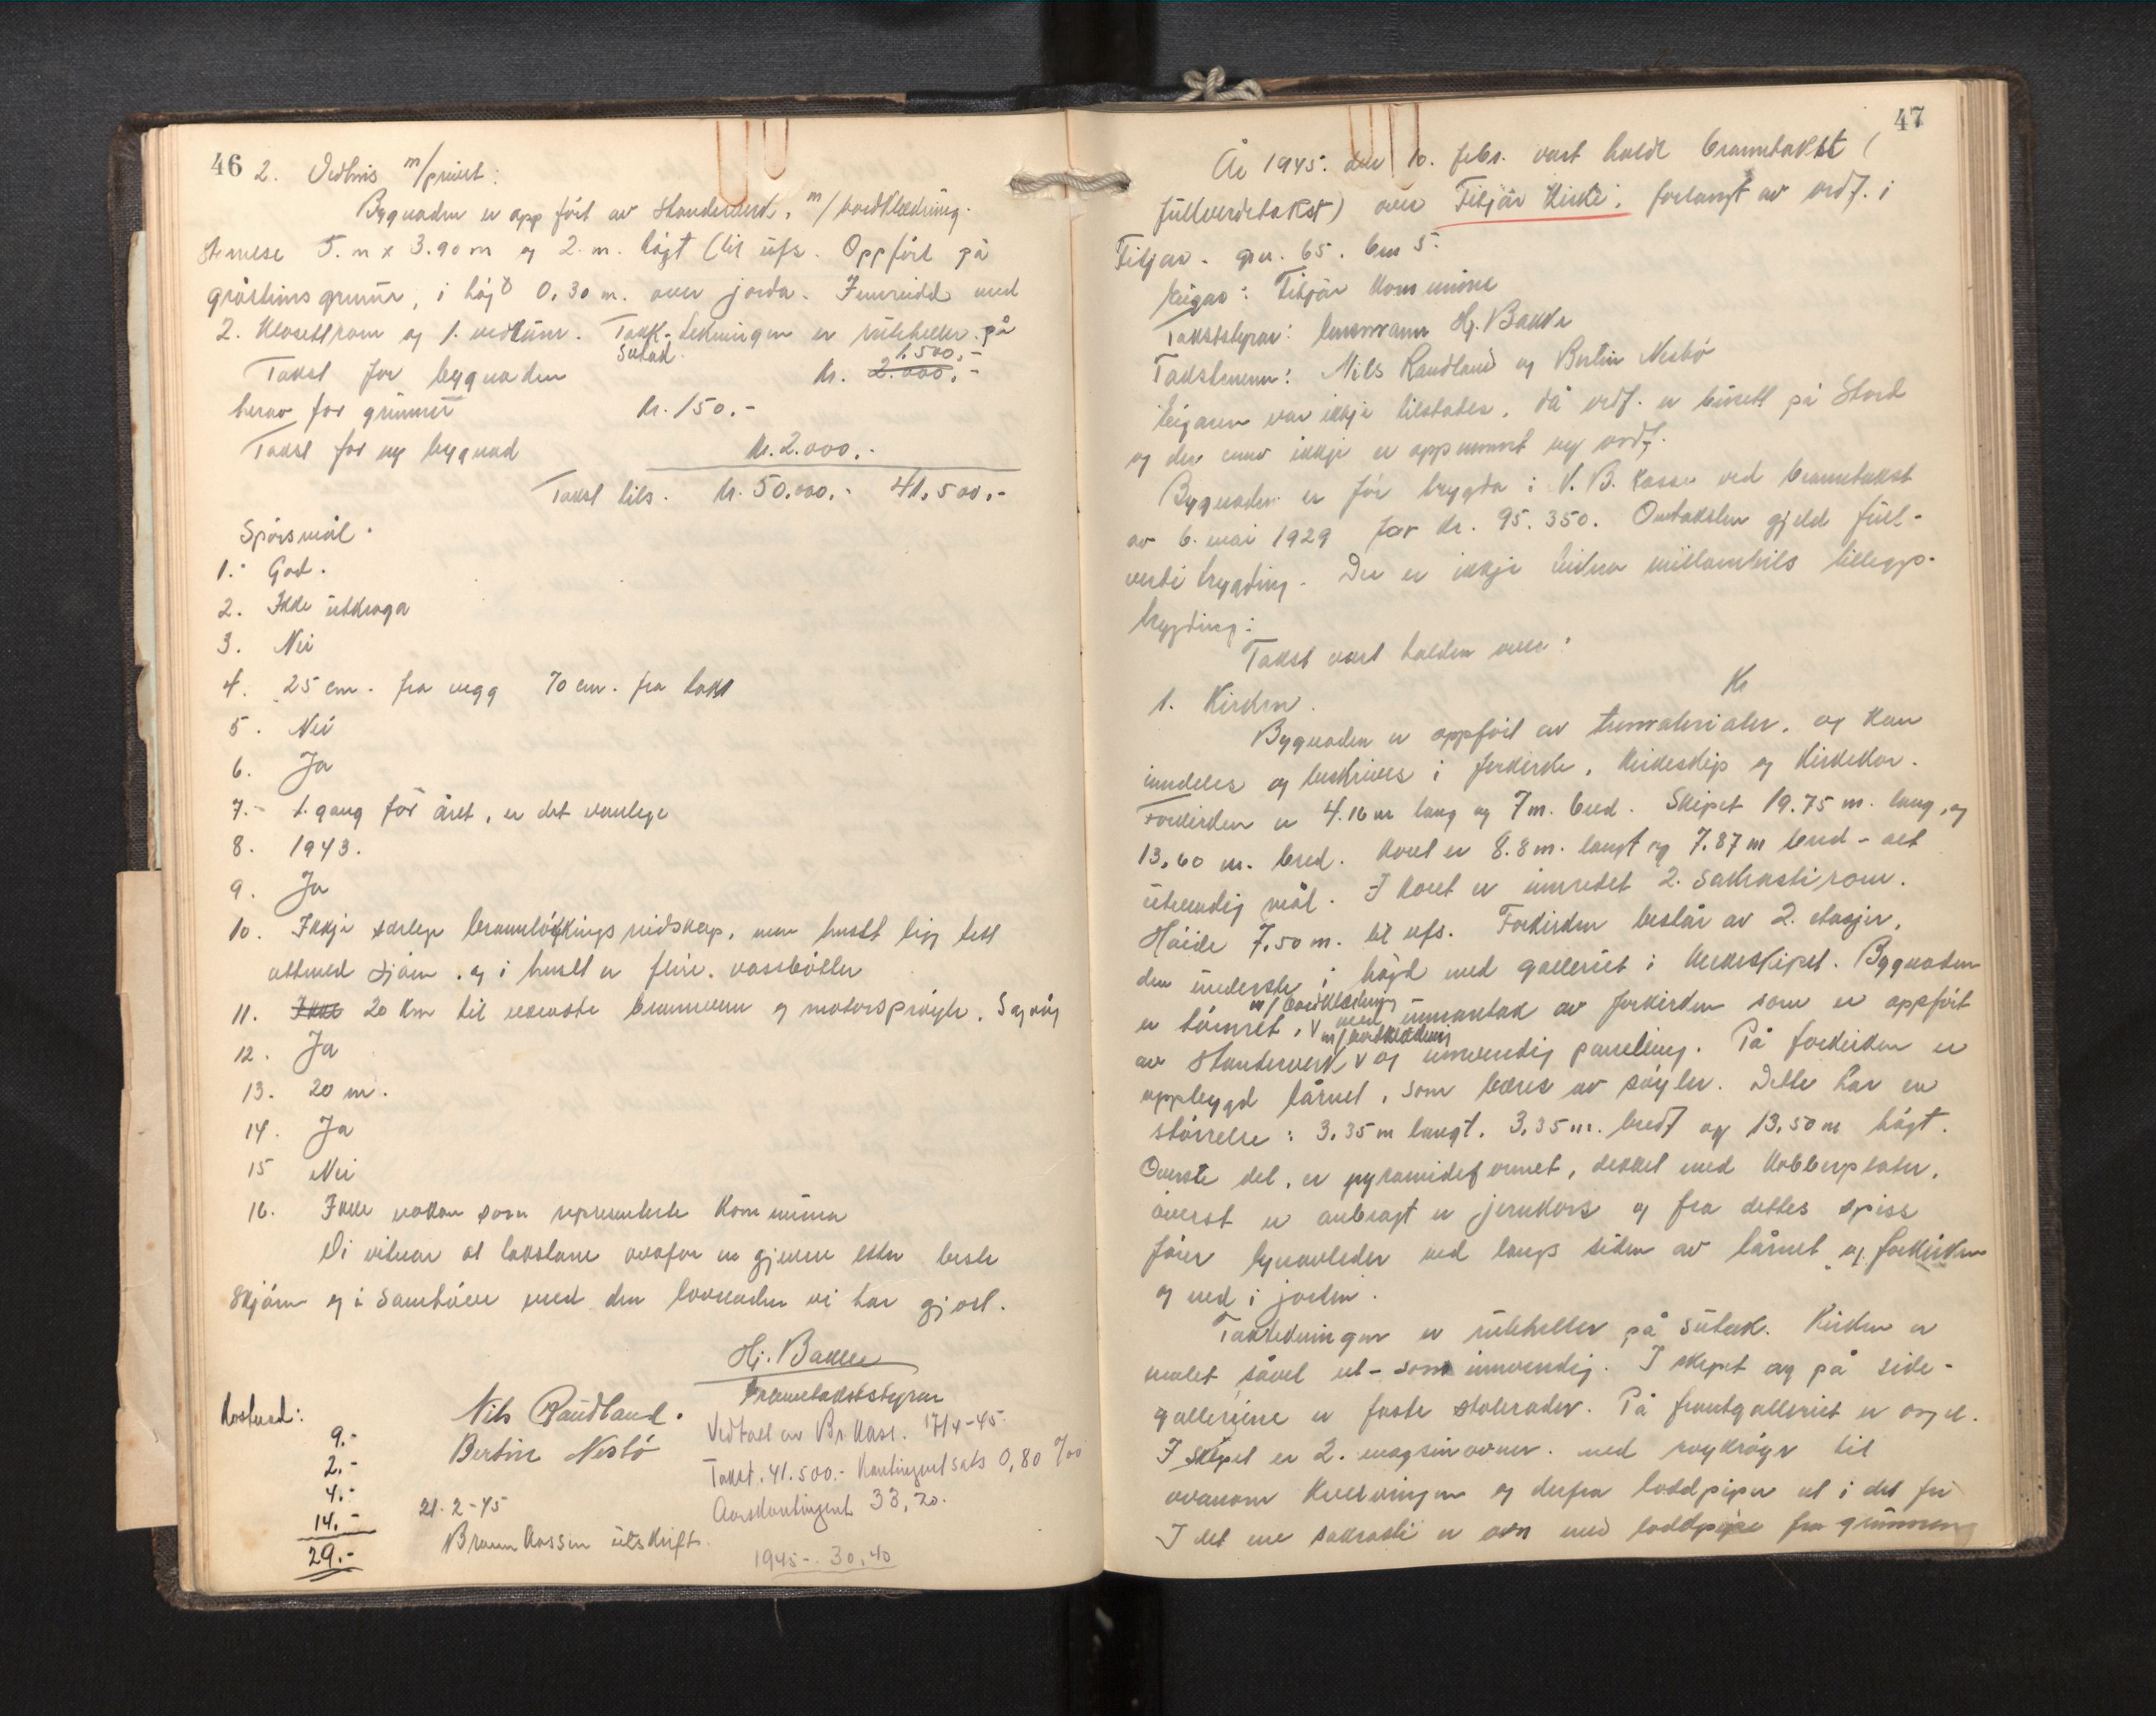 46
2. Vedhus m/privet:
Bygnaden er oppført av standerverk, m/bordklædning.
Størrelse 5. m x 3.90 m og 2. m. høgt (til ufs. Oppført på
gråsteinsgrunn, i høgd 0,30 m. over jorda. Innreidd med
2. klosettrom og 1. vedrum. Takk-tekningen er rutehellir på
sutak.
Takst for bygnaden kr. 2.000,- 1.500,-
herav for grunnur kr. 150.-
Takst for ny bygnad kr. 2.000.-
Takst tils. kr. 50.000.- 41.500.-
Spørsmål.
1. God.
2. Ikke utdraga
3. Nei
4. 25 cm. fra vegg 70 cm. fra takk
5. Nei
6. Ja
7.- 1. gang for året, er det vanlege
8. 1943.
9. Ja
10. Ikkje særlege brannløkkingsreidskap, men huset ligg tett
attmed sjøen. og i huset er fleire. vassbøtter
11. Ikke 20 km til næraste brannvern og motorsprøyte. Sagvåg
12. Ja
13. 20 m.
14. Ja
15 Nei
16. Ikke nokon som representerte kommunen
Vi vitnar at takstane ovafor er gjevne etter beste
skjøn og i samhøve med den lovnaden vi har gjort.
Hj. Bakke
branntakststyrar
Nils Raudland.
Bertin Nesbø
Kostnad:
9.-
2.-
4.-
14.-
29.-
21.2-45
Brannkassen utskrift.
Vedtatt av Br.kass. 17/4-45.
Takst. 41.500.- Kontingentsats 0,80 ‰
Aarskontingent 33,20.
1945 -. 30,40
47
År 1945. den 10. febr. vart haldt branntakst (
fullverdetakst) over Fitjar Kirke, forlangt av ordf. i
Fitjar. gnr. 65. bnr 5.
Eigar: Fitjar kommune
Takststyrar: lensmann Hj. Bakke
Takstmenn: Nils Raudland og Bertin Nesbø
Eigaren var ikkje tilstades, då ordf. er busett på Stord
og der ennu ikkje er oppnemnt ny ordf.
Bygnaden er før trygda i N. B. kasse ved branntakst
av 6. mai 1929 for kr. 95.350. Omtaksten gjeld full-
verdi trygding. Der er ikkje teikna millombils tilleggs-
trygding:
Takst vart halden over:
1. Kirken. Kr
Bygnaden er oppført av trematerialer, og kan
inndeles og beskrives i forkirke, kirkeskip og kirkekor.
Forkirken er 4.16 m lang og 7 m. bred. Skipet 19.75 m. lang, og
13,60 m. bred. Koret er 8.8 m. langt og 7.87 m bred - alt
utvendig mål. I koret er innredet 2. sakrastirom.
Høide 7,50 m. til ufs. Forkirken består av 2. etasjer,
den underste i høgd med galleriet i kirkeskipet. Bygnaden
er tømret, m/bordklædning - med unnantak av forkirken som er oppført
av standerverk m/bordklædning og innvendig panelling. På forkirken er
oppbygd tårnet, som bæres av søyler. Dette har en
størrelse: 3.35 m langt. 3.35 m. bredt og 13,50 m høgt.
Øverste del. er pyramideformet, dekket med kobberplater,
øverst er anbragt er jernkors og fra dettes spiss
fører lynavleder ned langs siden av tårnet og forkirken
og ned i jorden.
Taktekningen er rutehellir på sutak. Kirken er
malet såvel ut- som innvendig. I skipet og på side-
galleriene er faste stolerader. På frontgalleriet er orgel.
I skipet er 2. magasinovner. med røykrøyr til
ovanom kvelvingen og derfra loddpiper ut i det fri
I det ene sakrasti er ovn med loddpipe fra grunnen